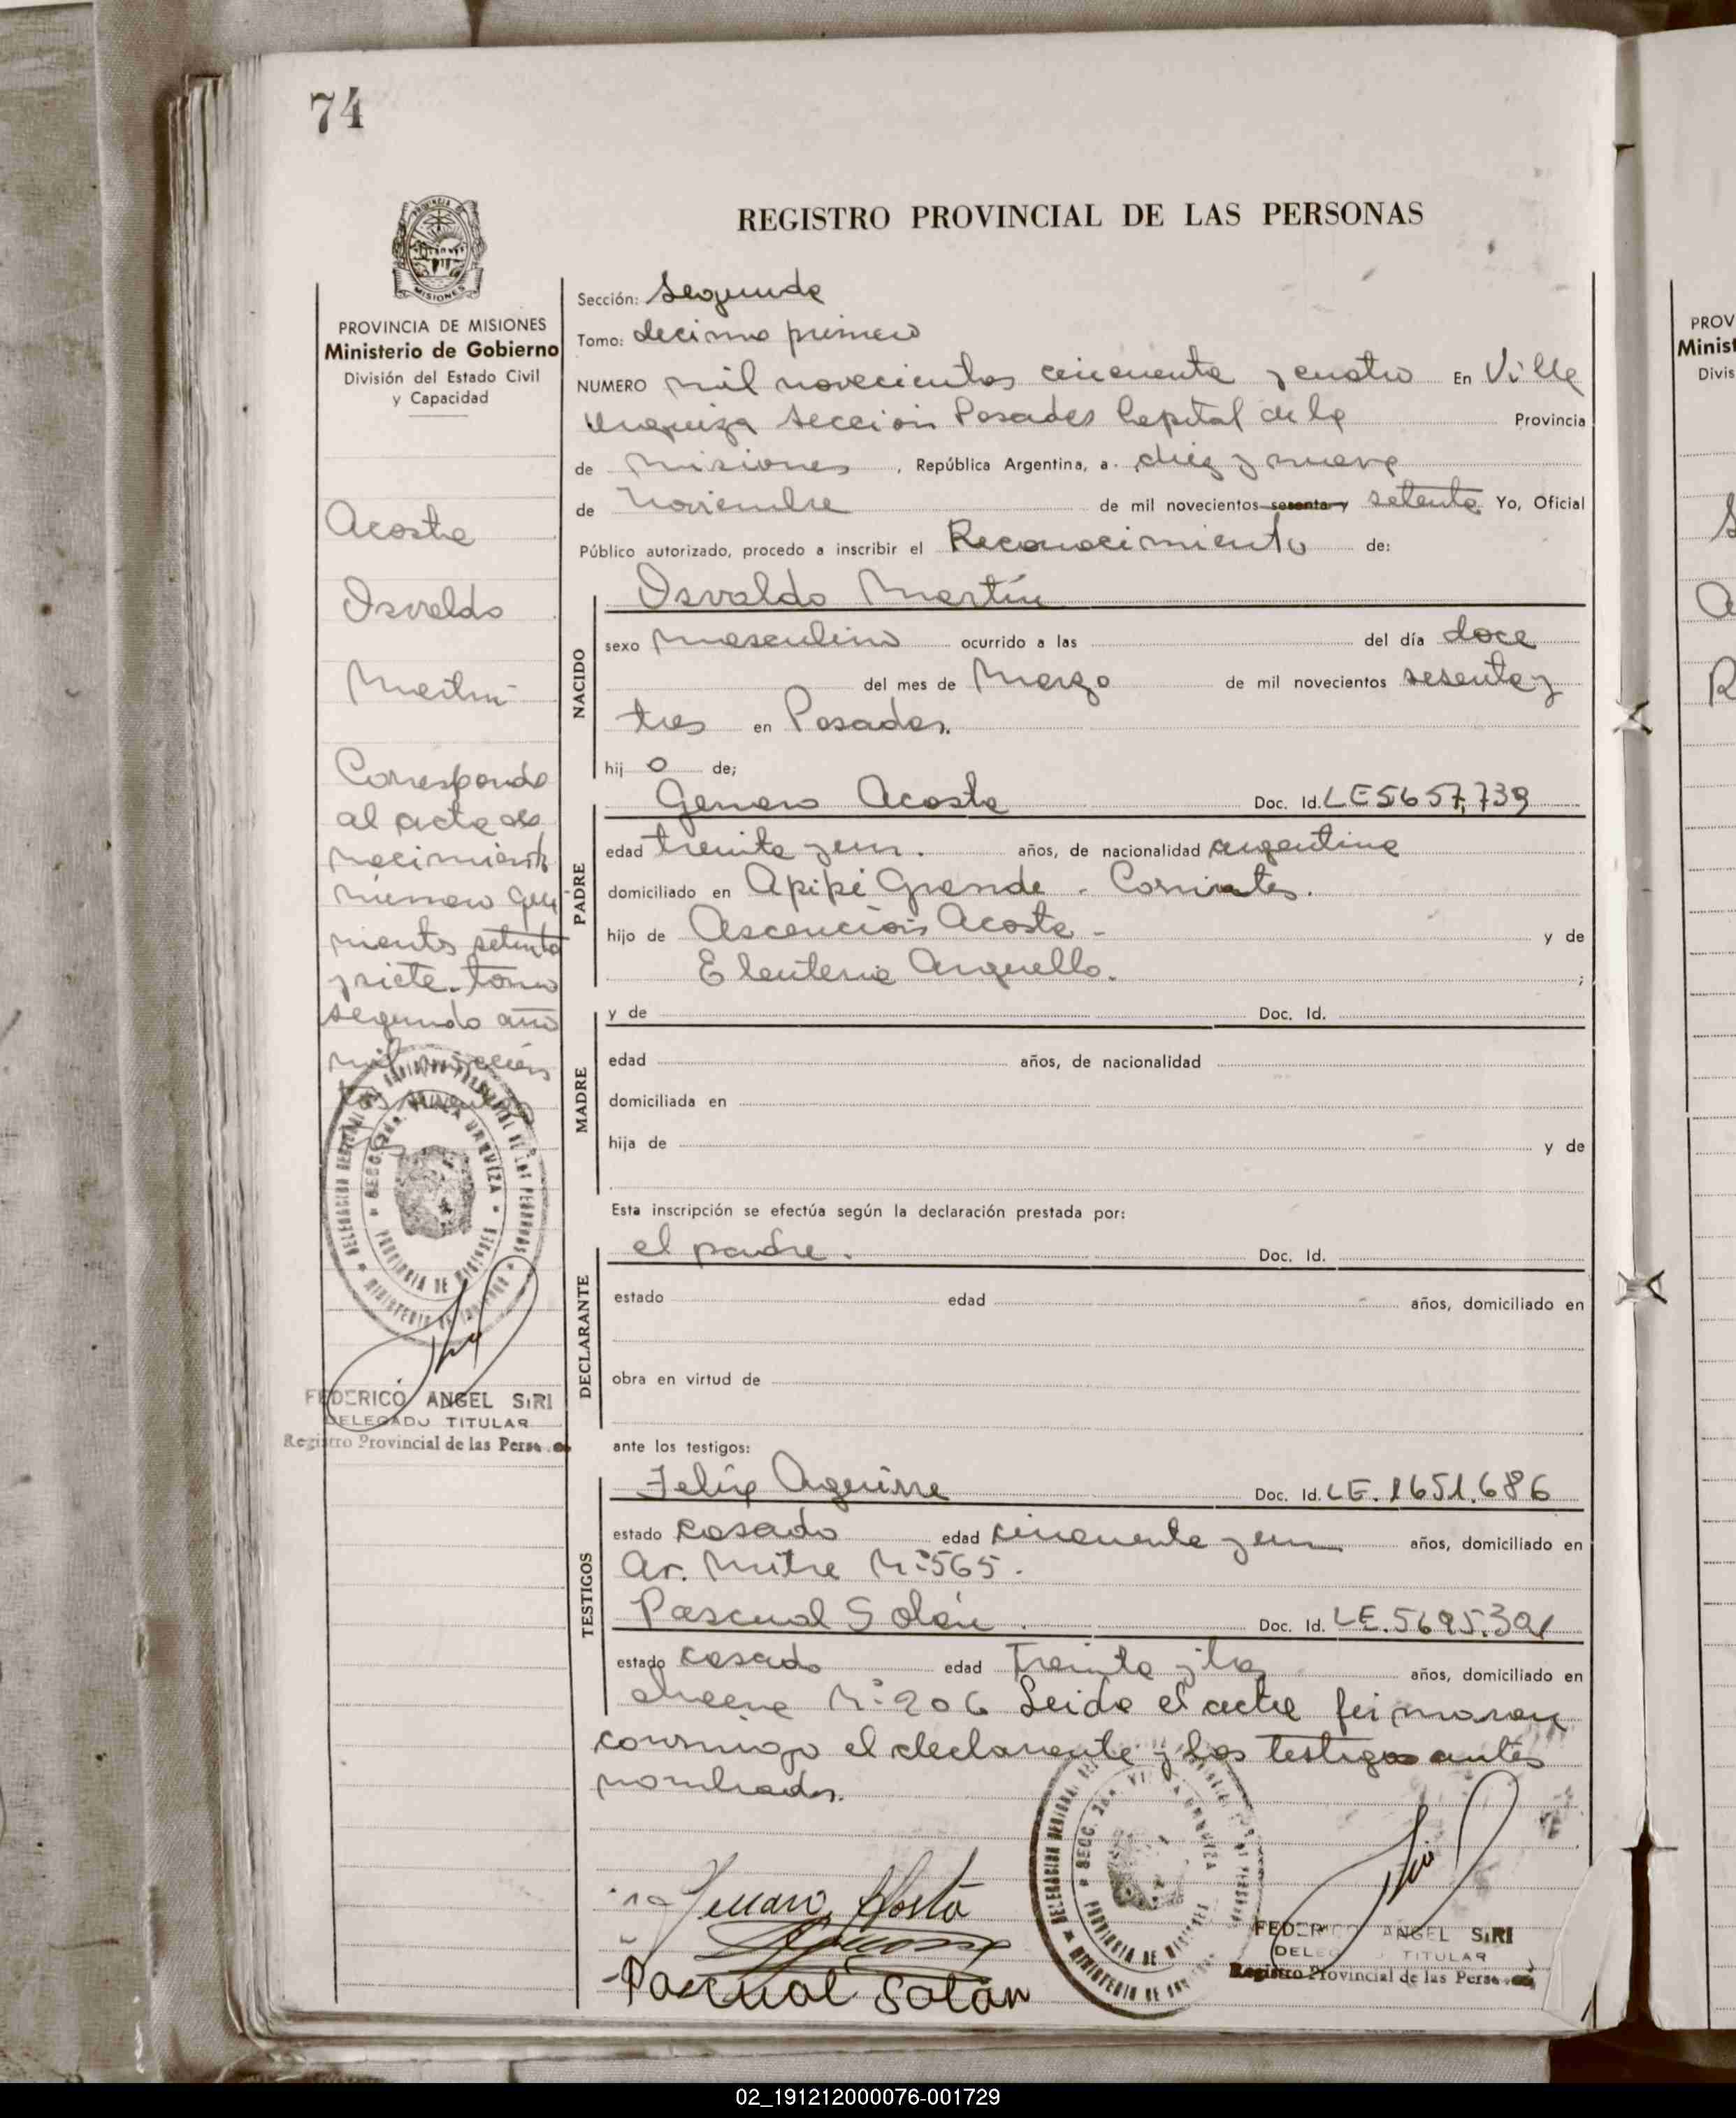 74
REGISTRO PROVINCIAL DE LAS PERSONAS
MISIONES
PROVINCIA DE MISIONES
Ministerio de Gobierno
División del Estado Civil
y Capacidad
Acosta
Osvaldo
Martin
Corresponde
al acta de
nacimiento
número
nientos setenta
y siete. tomo
segundo año
mil
FEDERICO ANGEL SIRI
DELEGADO TITULAR
Registro Provincial de las Perso
Sección: Segunda
Tomo: decimo primero
NUMERO mil novecientos cincuenta y cuatro En Villa
Urquiza Sección Posadas Capital de la Provincia
de Misiones, República Argentina, a diez y nueve
de Noviembre de mil novecientos sesenta y setenta Yo, Oficial
Público autorizado, procedo a inscribir el Reconocimiento de:
Osvaldo Martín
NACIDO
sexo masculino ocurrido a las del día doce
del mes de Marzo de mil novecientos sesenta y
tres en Posadas.
hij o de;
PADRE
Genaro Acosta Doc. Id. LE5657,739
edad treinta y un. años, de nacionalidad argentina
domiciliado en Apipé Grande - Corrientes.
hijo de Ascención Acosta - y de
Eleuteria Arguello. ;
MADRE
y de Doc. Id.
edad años, de nacionalidad
domiciliada en
hija de y de
Esta inscripción se efectúa según la declaración prestada por:
DECLARANTE
el padre. Doc. Id.
estado edad años, domiciliado en
obra en virtud de
ante los testigos:
TESTIGOS
Felix Aguirre Doc. Id. LE. 1651.686
estado casado edad cincuenta y un años, domiciliado en
Av. Mitre N:565.
Pascual Solán. Doc. Id. LE.5695.391
estado casado edad Treinta y tres años, domiciliado en
N:206 Leida el acta firmaron
conmigo el declarante y los testigos antes
nombrados.
Genaro Acosta
Pascual Solán
SECC. 2da. VILLA URQUIZA
PROVINCIA DE MISIONES
FEDERICO ANGEL SIRI
DELEGADO TITULAR
Registro Provincial de las Perso
PROV
Minist
Divis
02_191212000076-001729